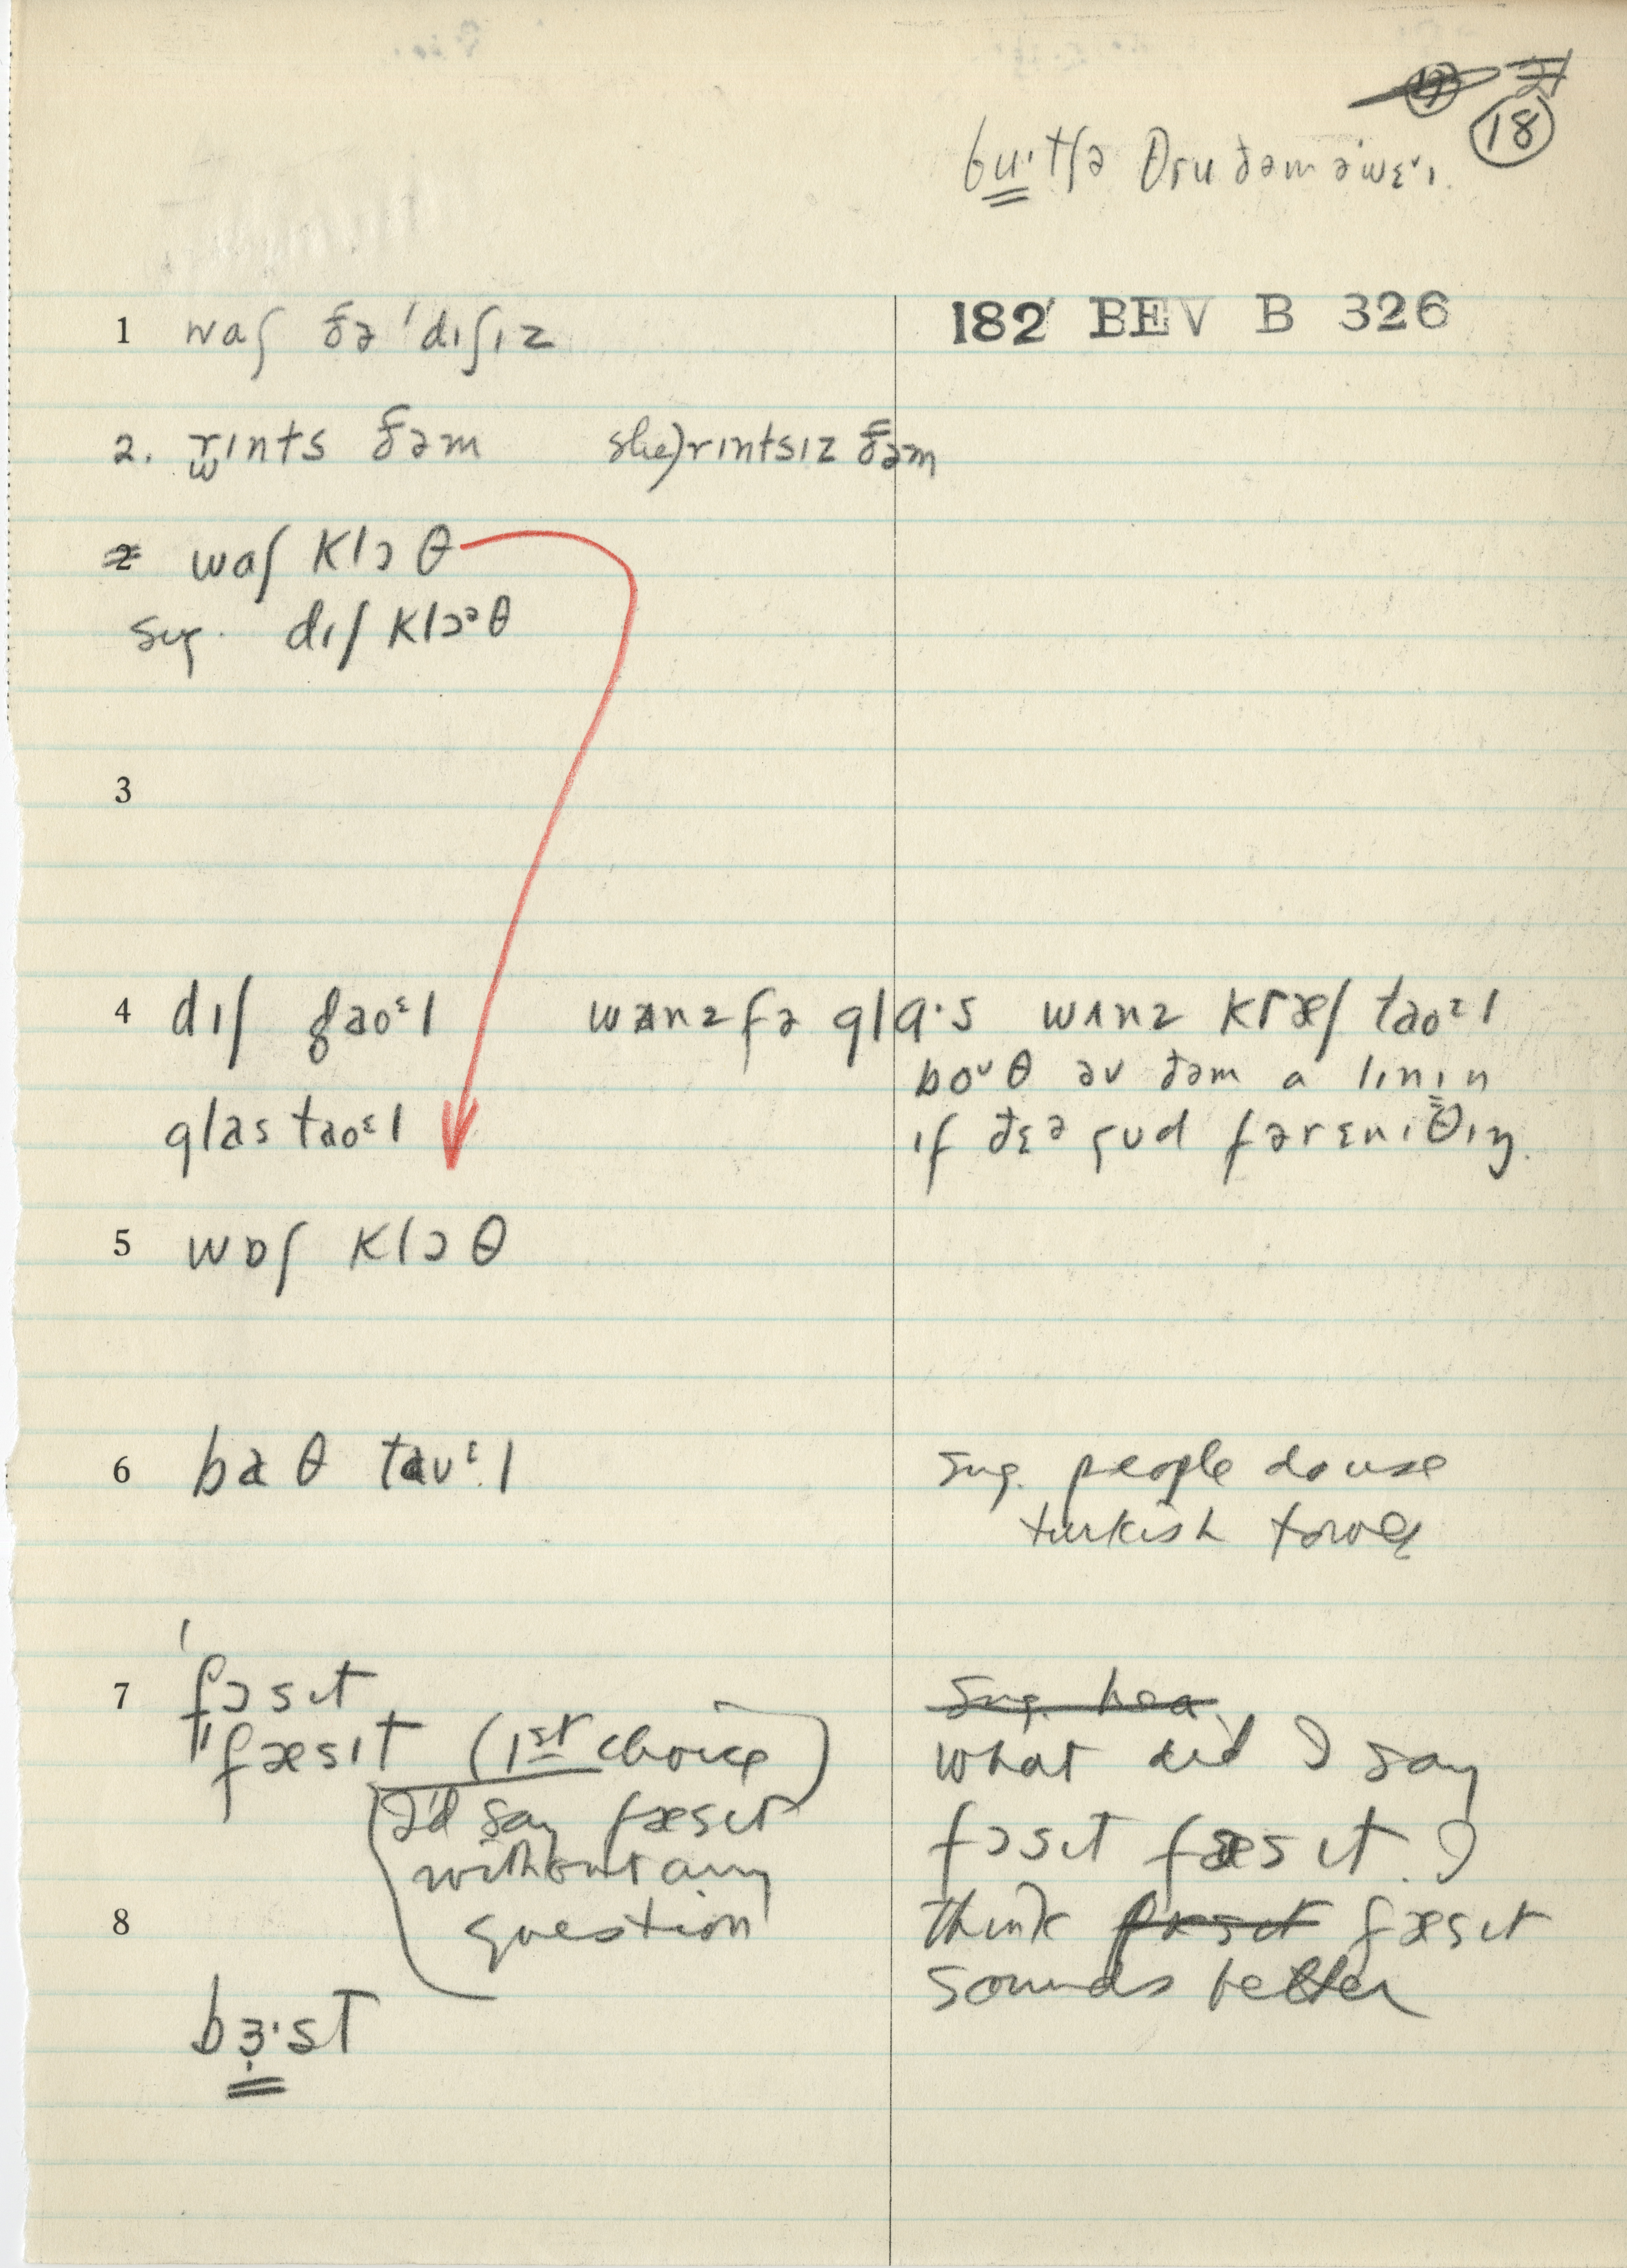 18
182 BEV B 326
1 waʃ ðə ˈdɪʃɪz
2. rɪnts ðəm she) rɪntsɪz ðəm
waʃ klɔθ
sug. dɪʃ klɔᵊθ
3
4 dɪʃ taoᵋl wʌnz fə glɑ·s wʌnz kræʃ taoᵋl
boᵘθ əv ðəm a lɪnɪn
glas taoᵋl
ɪf ðɛᵊ gud fərɛnɪθɪŋ.
5 wɒʃ klɔθ
6 baθ tauᵋl
sug. people do use
turkish towels
7 ˈfɔsɪt
"fæsɪt (1st choice)
I'd say fæsɪt
without any
question
what did I say
fɔsɪt fæsɪt. I
think fæsɪt
sounds better
8
bɜ·st